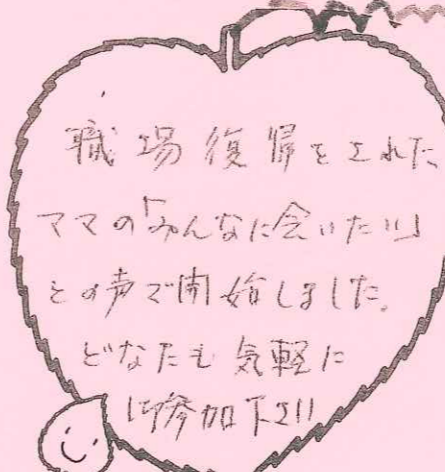 職場復帰をされた
ママの「みんなに会いたい」
との声で開始しました。
どなたも気軽に
御参加下さい